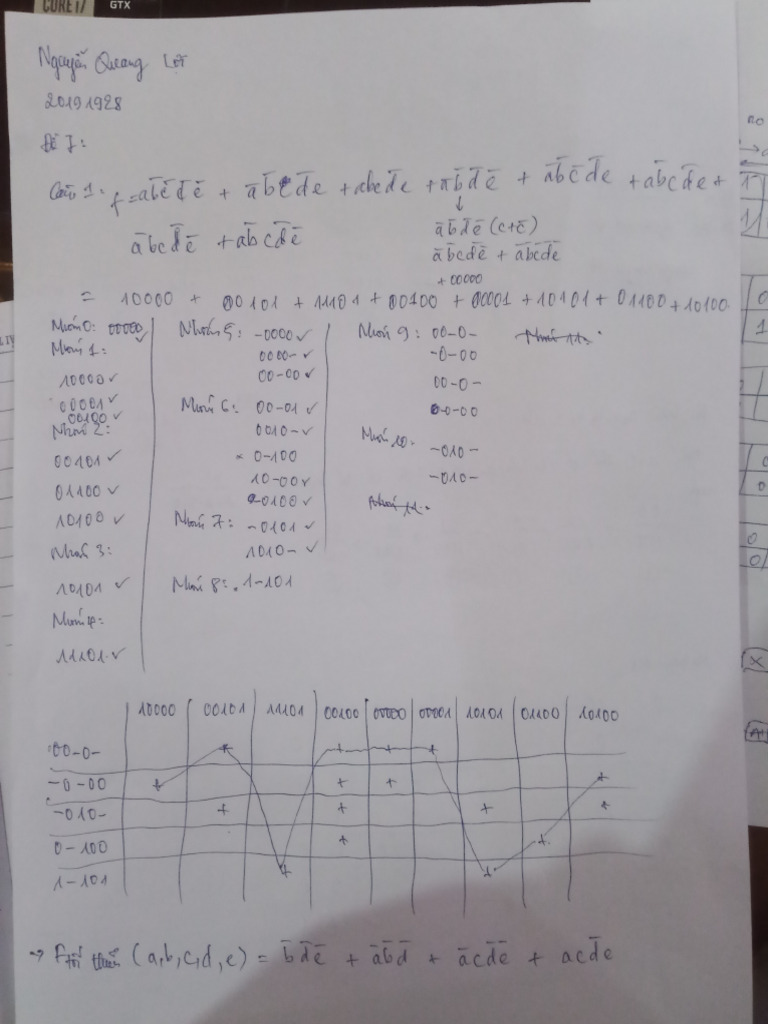 CORE i7 GTX
Nguyễn Quang Lợi
20191928
Đề I:
Câu 1: f = ab̅c̅d̅e̅ + a̅b̅cd̅e + abcd̅e + a̅b̅d̅e̅ + a̅b̅c̅d̅e + ab̅cd̅e +
↓
a̅bcd̅e̅ + ab̅cd̅e̅
a̅b̅d̅e̅(c+c̅)
a̅b̅cd̅e̅ + a̅b̅c̅d̅e̅
+ 00000
= 10000 + 00101 + 11101 + 00100 + 00001 + 10101 + 01100 + 10100
Nhóm 0: 00000 ✓
Nhóm 1:
10000 ✓
00001 ✓
00100 ✓
Nhóm 2:
00101 ✓
01100 ✓
10100 ✓
Nhóm 3:
10101 ✓
Nhóm 4:
11101 ✓
Nhóm 5: -0000 ✓
0000- ✓
00-00 ✓
Nhóm 6: 00-01 ✓
0010- ✓
× 0-100
10-00 ✓
-0100 ✓
Nhóm 7: -0101 ✓
1010- ✓
Nhóm 8: . 1-101
Nhóm 9: 00-0-
-0-00
00-0-
-0-00
Nhóm 10: -010-
-010-
Nhóm 11:
Nhóm 11:
10000 00101 11101 00100 00000 00001 10101 01100 10100
00-0- + + + +
-0-00 + + + +
-010- + + + +
0-100 + +
1-101 + +
→ F tối thiểu (a,b,c,d,e) = b̅d̅e̅ + a̅b̅d̅ + a̅cd̅e̅ + acd̅e